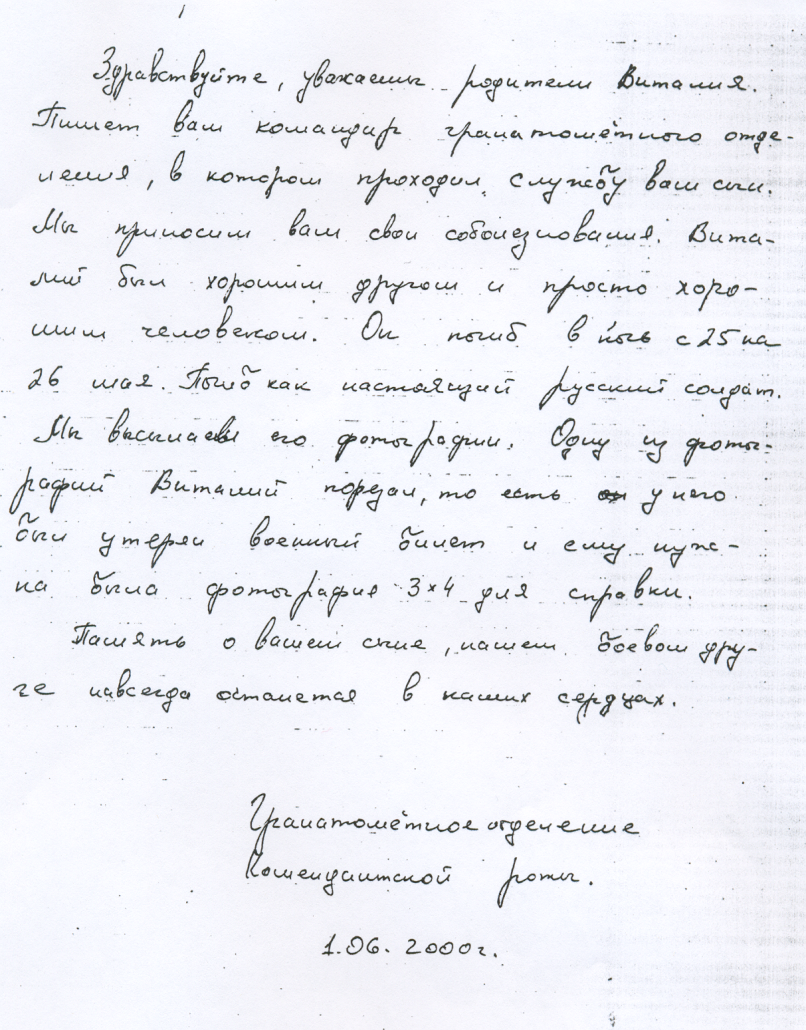 Здравствуйте, уважаемы родители Виталия.
Пишет вам командир гранатомётного отде-
ления, в котором проходил службу ваш сын.
Мы приносим вам свои соболезнования. Вита-
лий был хорошим другом и просто хоро-
шим человеком. Он погиб в ночь с 25 на
26 мая. Погиб как настоящий русский солдат.
Мы высылаем его фотографии. Одну из фото-
графий Виталий порезал, то есть у него
был утерян военный билет и ему нуж-
на была фотография 3×4 для справки.
Память о вашем сыне, нашем боевом дру-
ге навсегда останется в наших сердцах.
Гранатомётное отделение
Комендантской роты.
1.06. 2000г.